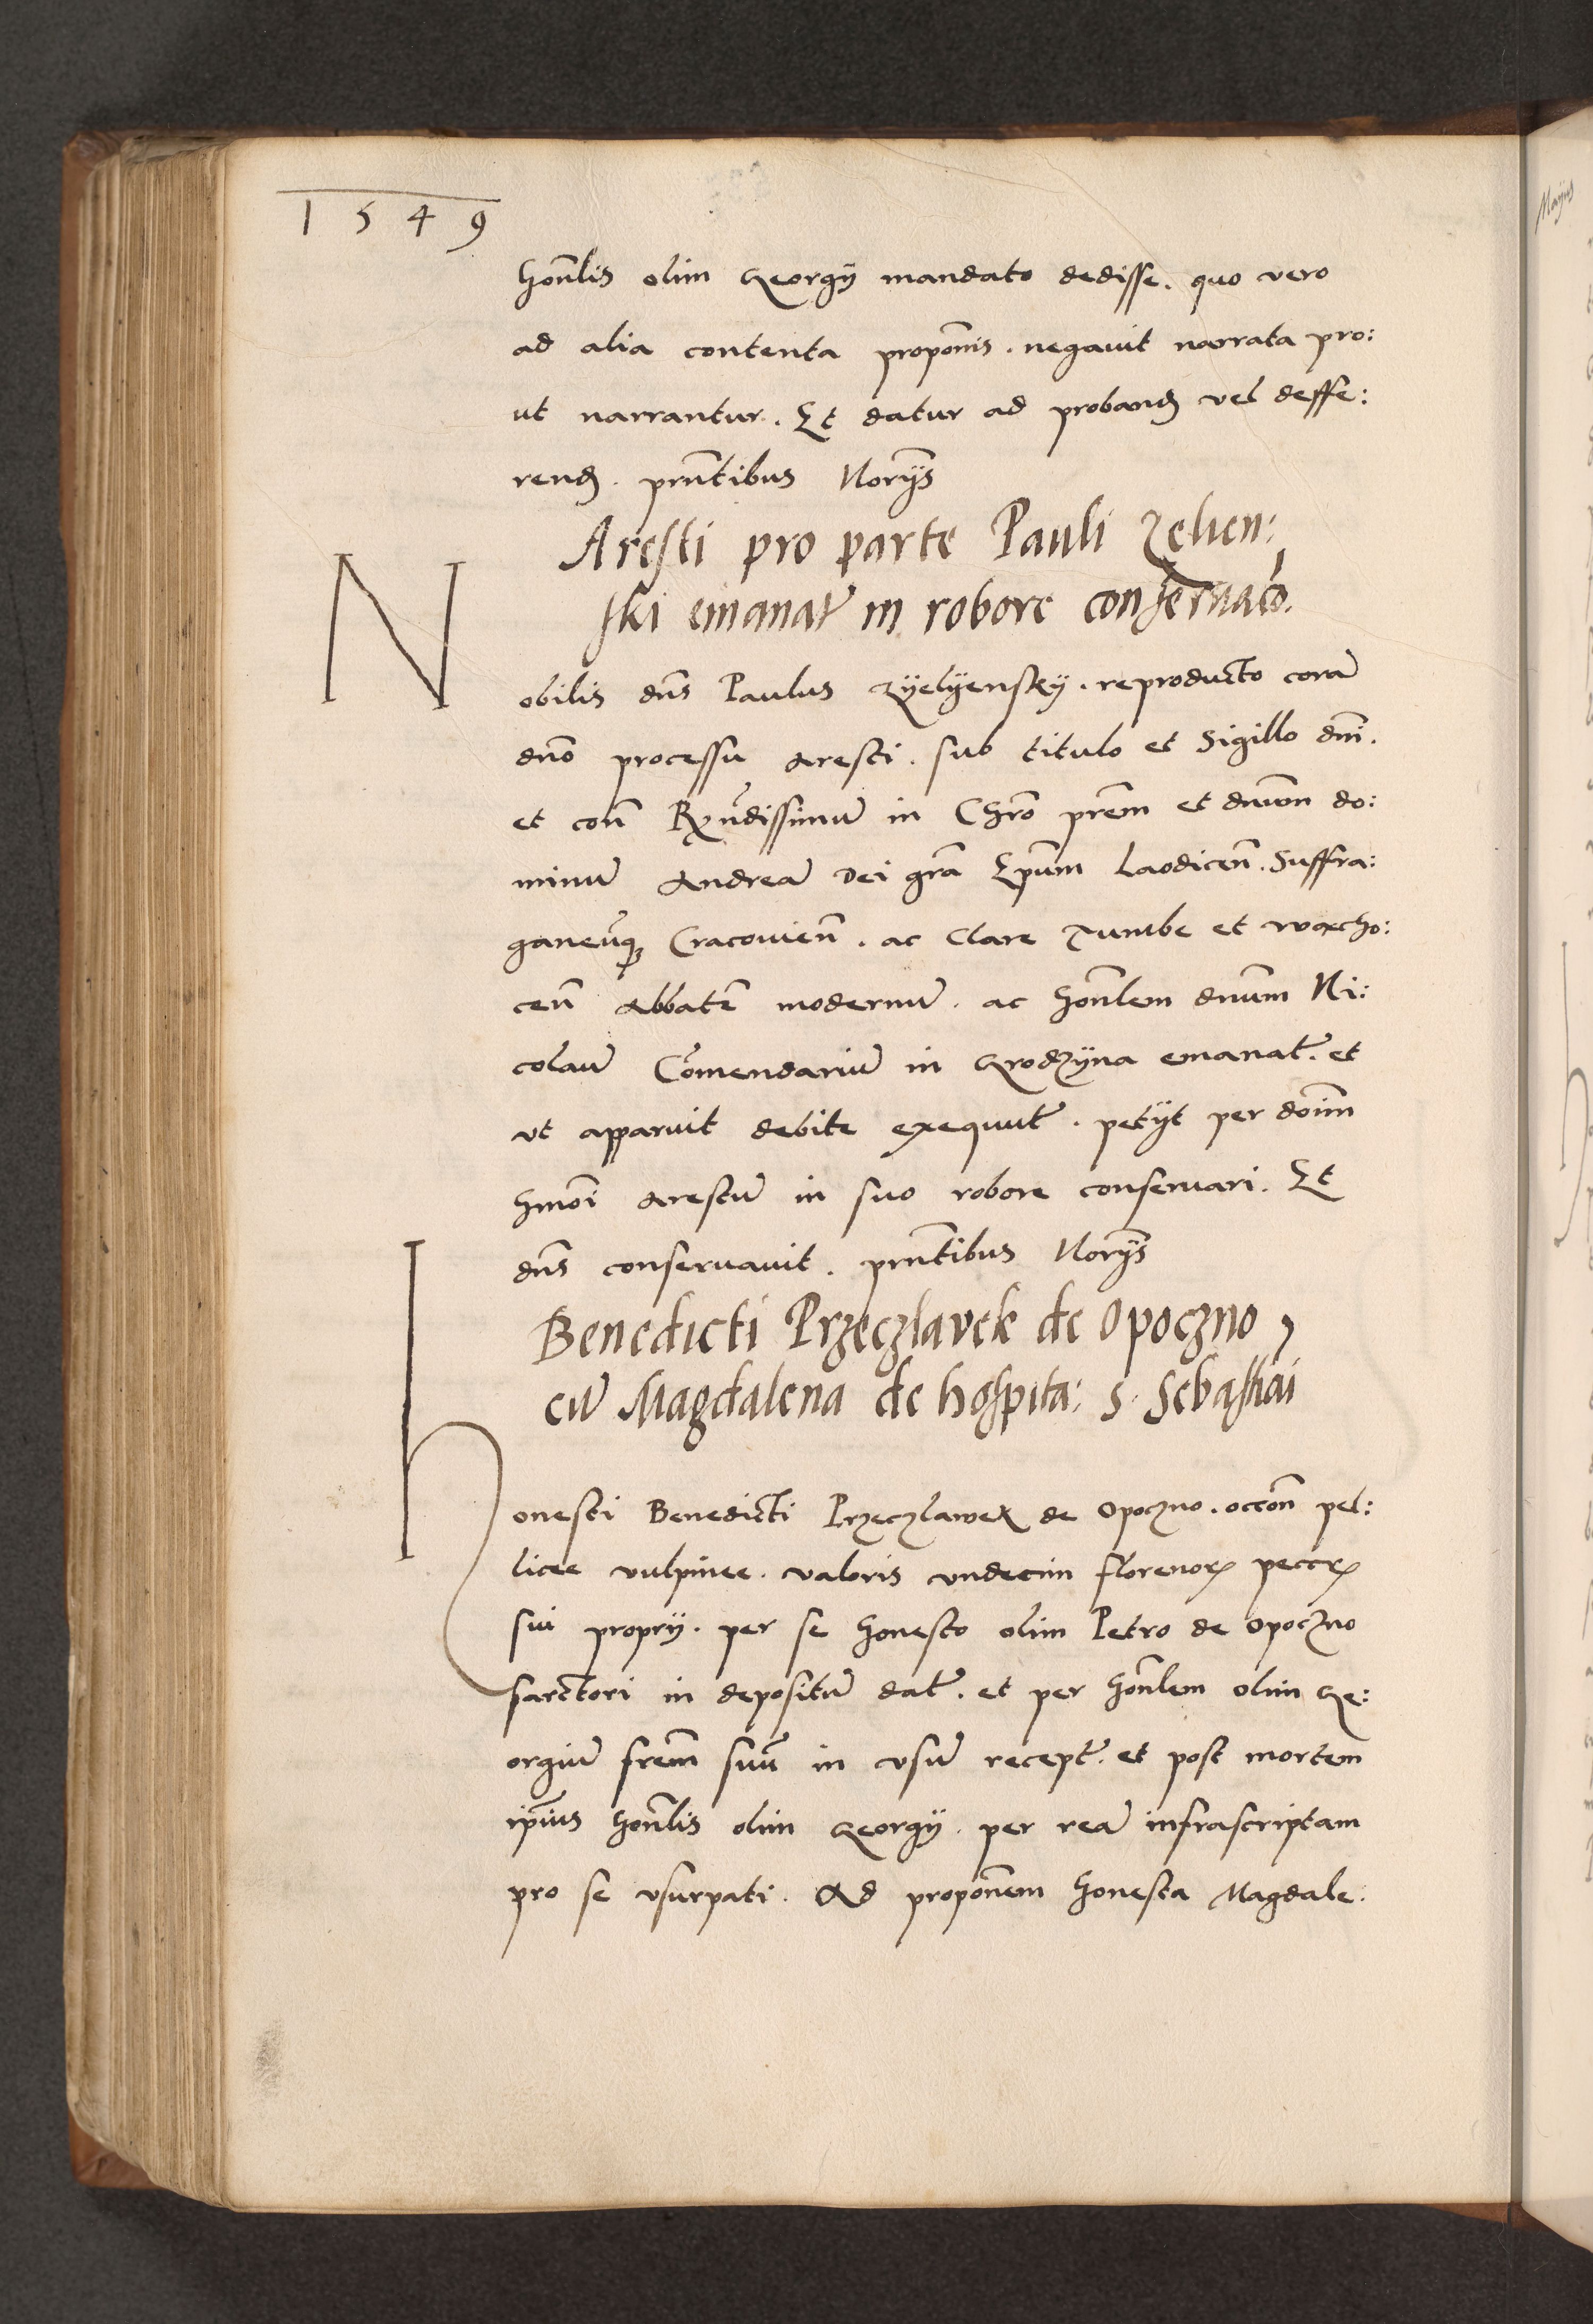 1549
hon̄lis olim Georgÿ mandato dedisse. quo vero
ad alia contenta propon̄is. negauit narrata pro:
ut narrantur. Et datur ad proband vel deffe:
rend. pn̄tibus Norÿs
Aresti pro parte Pauli Zelien:
ski emanat̄ in robore conseruaō.
Nobilis dn̄s Paulus Zÿelÿenskÿ. reproducto corā
dn̄o processu Aresti. sub titulo et Sigillo dn̄i.
et con̄ Rv̄dissimū in Chr̄o prēm et dnm̄ do:
minū Andreā Dei grā Epūm Laodiceн̄. Suffra:
ganeūq Cracouien̄. ac Clare Tumbe et wacho:
cen̄ Abbatē modernū. ac hon̄lem dnūm Ni:
colaū Cōmendariū in Grodzÿna emanat̄. et
ut apparuit debite exequut̄. petÿt per doim̄
hmōi Arestū in suo robore conseruari. Et
dn̄s conseruauit. pn̄tibus Norÿs
Benedicti Przeczlavek de Opoczno,
cū Magdalena de hospita: S. Sebastiāi
Honesti Benedicti Przeczlawek de Opoczno. occōn pel:
licee vulpinee. valoris vndecim florenoꝝ peccꝝ
sui proprÿ. per se honesto olim Petro de Opoczno
sarctori in depositū dat̄. et per hon̄lem olim Ge:
orgiū frēm suū in vsū recept̄. et post mortem
ip̄ius hon̄lis olim Georgÿ. per reā infrascriptam
pro se vsurpati. Ad propōnem honesta Magdale.
Mayus